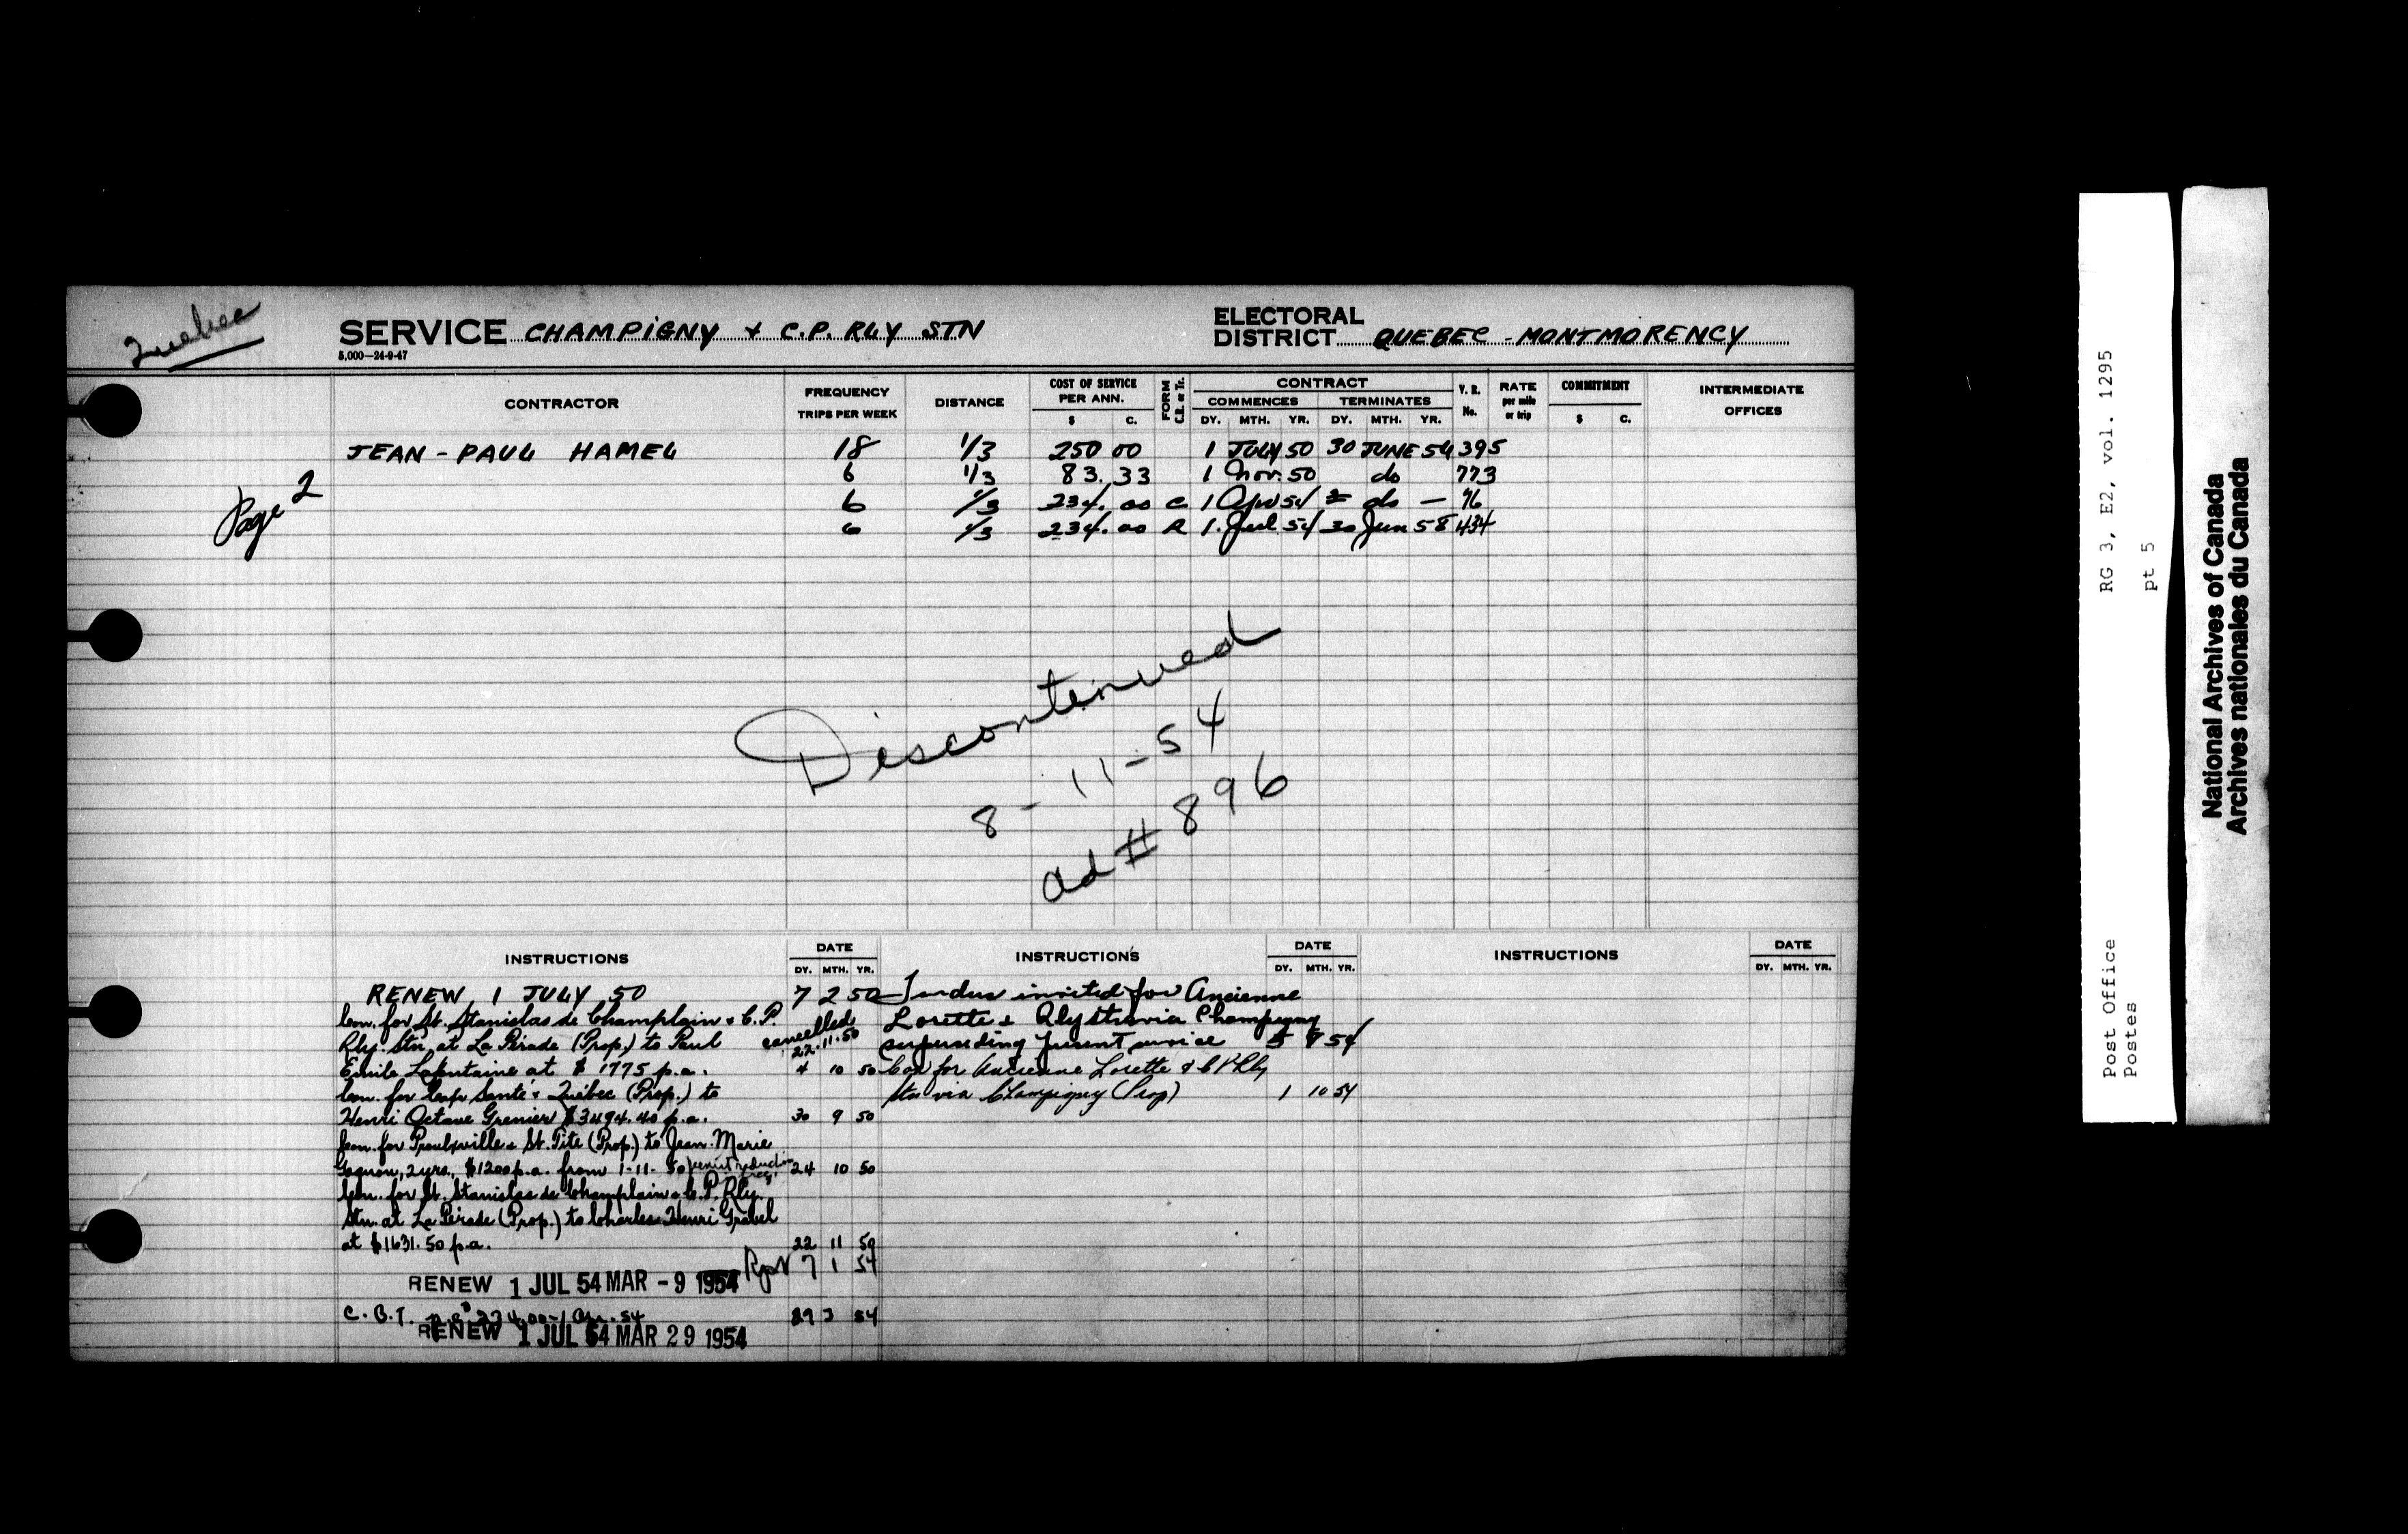 Quebec
SERVICE CHAMPIGNY & C.P. RLY STN
5,000—24-9-47
ELECTORAL
DISTRICT QUEBEC - MONTMORENCY
CONTRACTOR
FREQUENCY
TRIPS PER WEEK
DISTANCE
COST OF SERVICE
PER ANN.
$ C.
FORM
C.R. or Tr.
CONTRACT
COMMENCES TERMINATES
DY. MTH. YR. DY. MTH. YR.
V. R.
No.
RATE
per mile
or trip
COMMITMENT
$ C.
INTERMEDIATE
OFFICES
JEAN - PAUL HAMEL 18 1/3 250 00 1 JULY 50 30 JUNE 54 395
6 1/3 83.33 1 Nov. 50 do 773
6 1/3 234.00 C 1 Apr 54 do — 76
6 1/3 234.00 R 1 Jul 54 30 Jun 58 434
Page 2
Discontinued
8-11-54
ad # 896
INSTRUCTIONS
DATE
DY. MTH. YR.
RENEW 1 JULY 50 7 2 50
Com. for St. Stanislas de Champlain & C.P.
Rly. Stn. at La Pérade (Prop.) to Paul cancelled 22.11.50
Emile Lafontaine at $1775 p.a. 4 10 50
Com. for Cap Santé & Québec (Prop.) to
Henri Octave Grenier $3494.40 p.a. 30 9 50
Com. for Proulxville & St. Tite (Prop.) to Jean-Marie
Gagnon, 2 yrs., $1200 p.a. from 1-11-50 24 10 50
Com. for St. Stanislas de Champlain & C.P. Rly.
Stn. at La Pérade (Prop.) to Charles Henri Gravel
at $1631.50 p.a. 22 11 50
Rpt 7 1 54
RENEW 1 JUL 54 MAR - 9 1954
C.B.T. 234.00 - 1 Apr. 54 29 3 54
RENEW 1 JUL 54 MAR 29 1954
INSTRUCTIONS
DATE
DY. MTH. YR.
Tender invited for Ancienne
Lorette & Rly Stn via Champigny
superseding present service 5 54
Con for Ancienne Lorette & CP Rly
Stn via Champigny (Prop) 1 10 54
INSTRUCTIONS
DATE
DY. MTH. YR.
Post Office
Postes
RG 3, E2, vol. 1295
pt 5
National Archives of Canada
Archives nationales du Canada